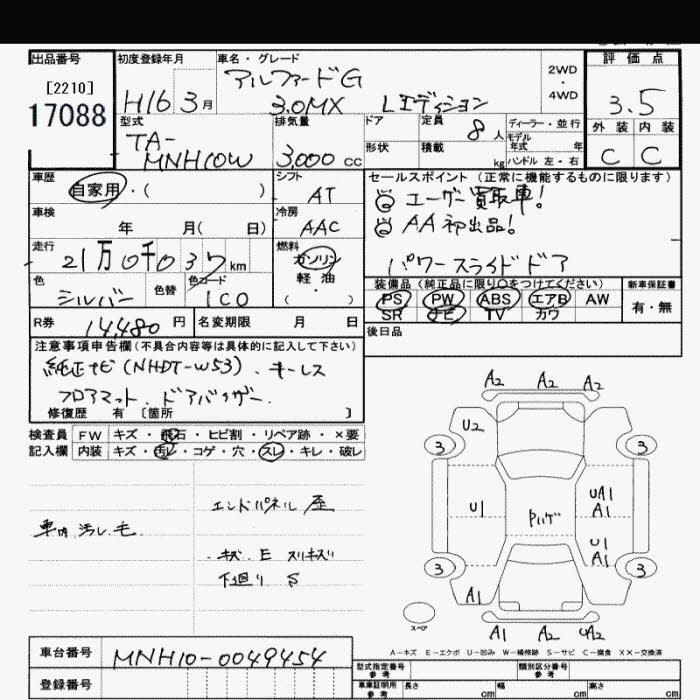 出品番号
[2210]
17088
初度登録年月
H16 3月
車名・グレード
アルファードG
3.0MX Lエディション
2WD
・
4WD
評価点
3.5
外装 内装
C C
型式
TA-
MNH10W
排気量
3,000 cc
ドア
定員 8人
ディーラー・並行
モデル
年式 年
形状
積載 kg
ハンドル 左・右
車歴
自家用・( )
シフト
AT
車検
年 月( 日)
冷房
AAC
走行
21万0千037km
燃料
ガソリン
軽油
・
( )
色
シルバー
色替
色コード
1C0
セールスポイント (正常に機能するものに限ります)
ユーザー買取車!
AA初出品!
パワースライドドア
装備品 (純正品に限り○をつけてください)
PS PW ABS エアB AW
SR ナビ TV カワ
新車保証書
有・無
R券 14,480円
名変期限 月 日
後日品
注意事項申告欄(不具合内容等は具体的に記入して下さい)
純正ナビ(NHDT-W53)、キーレス
フロアマット、ドアバイザー
修復歴 有 〔箇所 〕
検査員 FW キズ・飛石・ヒビ割・リペア跡・×要
記入欄 内装 キズ・汚レ・コゲ・穴・スレ・キレ・破レ
エンドパネル 歪
車内 汚レ 毛
キズ E スリキズ
下廻り S
A2 A2 A2
U2
3 3
U1
Pハゲ
UA1
A1
U1
A1
3 3
A1
スペア
A1 A2 UA2
A-キズ E-エクボ U-凹み W-補修跡 S-サビ C-腐食 XX-交換済
車台番号 MNH10-0049454
登録番号
型式指定番号
参考
類別区分番号
参考
車庫証明用
参考
長さ cm
幅 cm
高さ cm